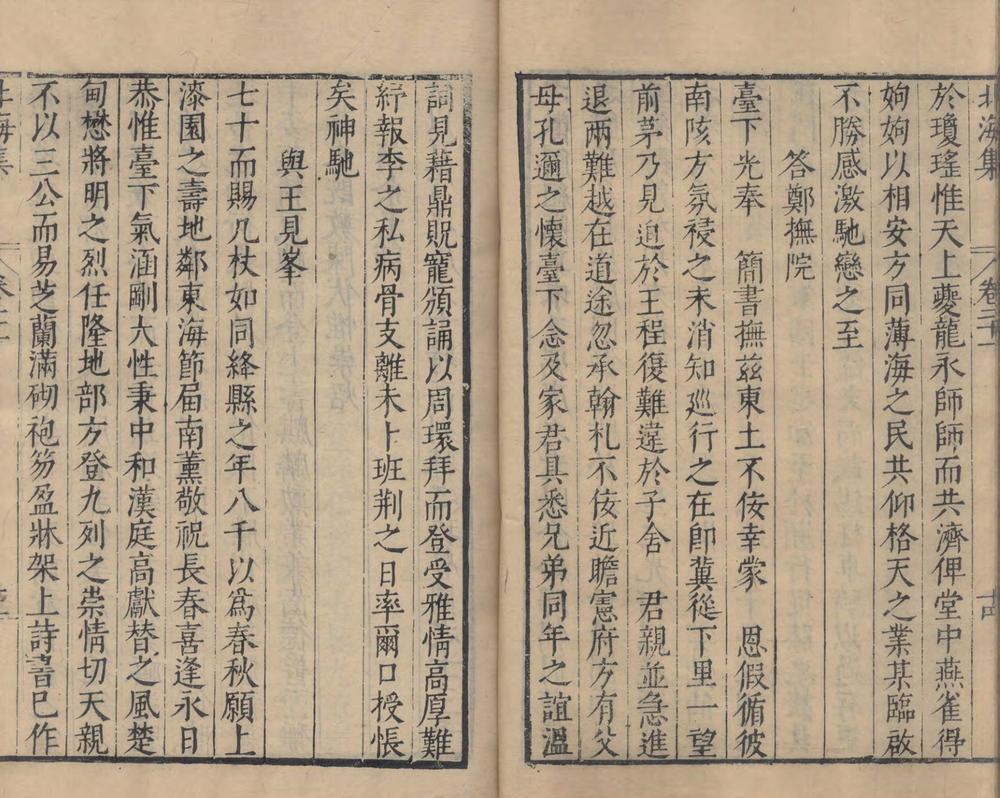 北海集 卷二十一 十四
於瓊瑤惟天上夔龍永師師而共濟俾堂中燕雀得
姁姁以相安方同薄海之民共仰格天之業某臨啟
不勝感激馳戀之至
答鄭撫院
臺下光奉 簡書撫茲東土不佞幸蒙 恩假循彼
南陔方氛祲之未消知巡行之在卽冀從下里一望
前茅乃見迫於王程復難違於子舍 君親並急進
退兩難越在道途忽承翰札不佞近瞻憲府方有父
母孔邇之懷臺下念及家君具悉兄弟同年之誼溫
詞見藉鼎貺寵頒誦以周環拜而登受雅情高厚難
紓報李之私病骨支離未卜班荆之日率爾口授悵
矣神馳
與王見峯
七十而賜几杖如同絳縣之年八千以爲春秋願上
漆園之壽地鄰東海節届南薰敬祝長春喜逢永日
恭惟臺下氣涵剛大性秉中和漢庭高獻替之風楚
甸懋將明之烈任隆地部方登九列之崇情切天親
不以三公而易芝蘭滿砌袍笏盈牀架上詩書已作